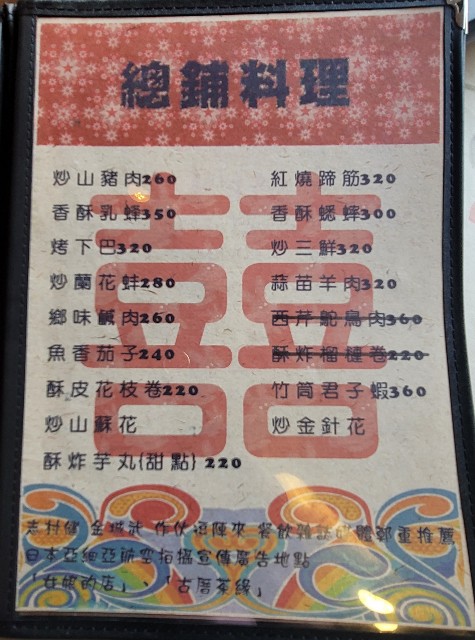 總鋪料理
炒山豬肉260
香酥乳蜂350
烤下巴320
炒蘭花蚌280
鄉味鹹肉260
魚香茄子240
酥皮花枝卷220
炒山蘇花
酥炸芋丸{甜點} 220
紅燒蹄筋320
香酥蟋蟀300
炒三鮮320
蒜苗羊肉320
西芹鴕鳥肉360
酥炸榴槤卷220
竹筒君子蝦360
炒金針花
志村健 金城武 作伙逗陣來 餐飲雜誌 體鄭重推薦
日本亞細亞航空指搖宣傳廣告地點
「女娘的店」、「古厝茶緣」